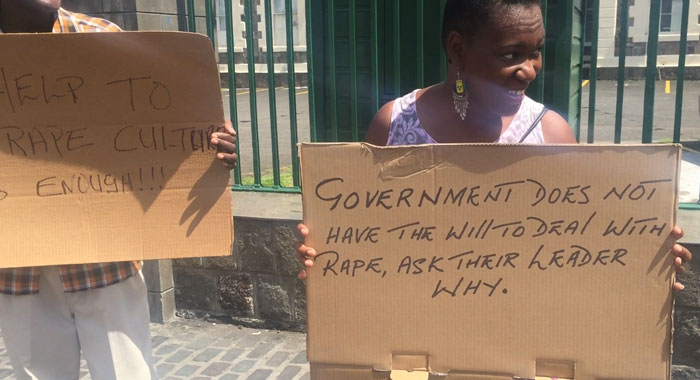 HELP TO
RAPE CULTURE
ENOUGH!!!
GOVERNMENT DOES NOT
HAVE THE WILL TO DEAL WITH
RAPE, ASK THEIR LEADER
WHY.